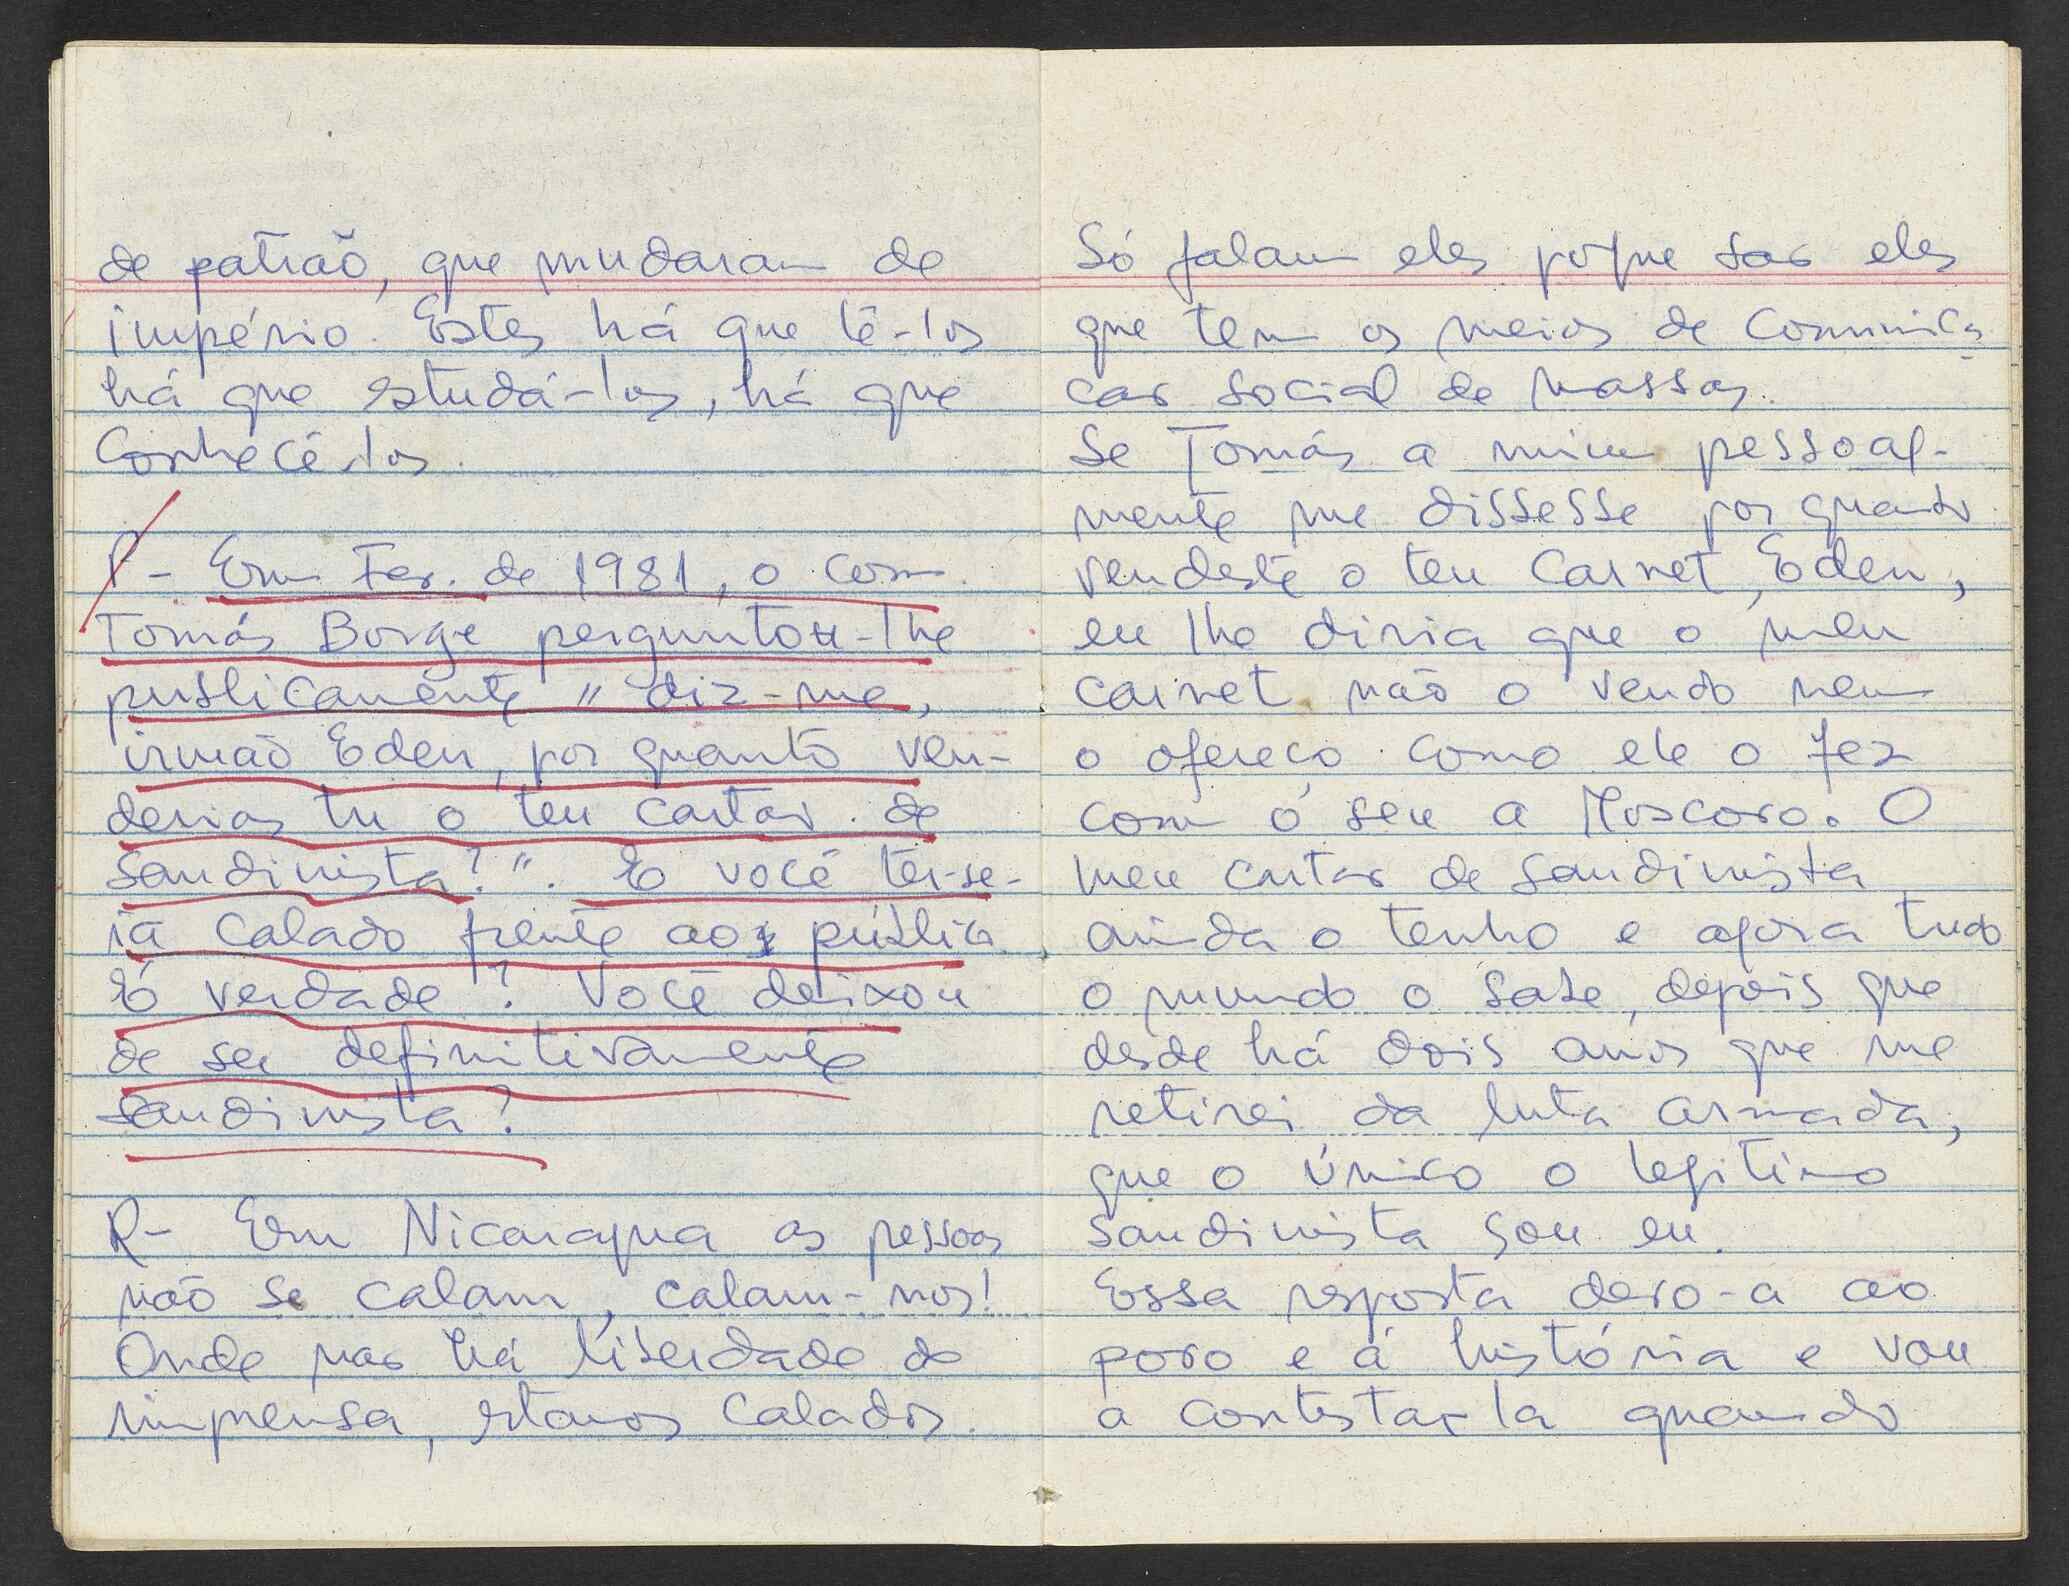 de patrão, que mudaram de
império. Estes há que tê-los
há que estudá-los, há que
conhecê-los.
P- Em Fev. de 1981, o com.
Tomás Borge perguntou-lhe
publicamente "diz-me,
irmão Eden, por quanto ven-
derias tu o teu cartão de
sandinista?". E você ter-se-
ia calado frente ao público
É verdade? Você deixou
de ser definitivamente
sandinista?
R- Em Nicaragua as pessoas
não se calam, calam-nos!
Onde não há liberdade de
imprensa, estamos calados.
Só falam eles porque são eles
que tem os meios de comunica
ção social de massas.
Se Tomás a mim pessoal-
mente me dissesse por quanto
vendeste o teu carnet, Eden,
eu lhe diria que o meu
carnet não o vendo nem
o ofereço como ele o fez
com o seu a Moscovo. O
meu cartão de sandinista
ainda o tenho e agora tudo
o mundo o sabe, depois que
desde há dois anos que me
retirei da luta armada,
que o único o legitimo
sandinista sou eu.
Essa resposta devo-a ao
povo e á história e vou
a contestar-la quando